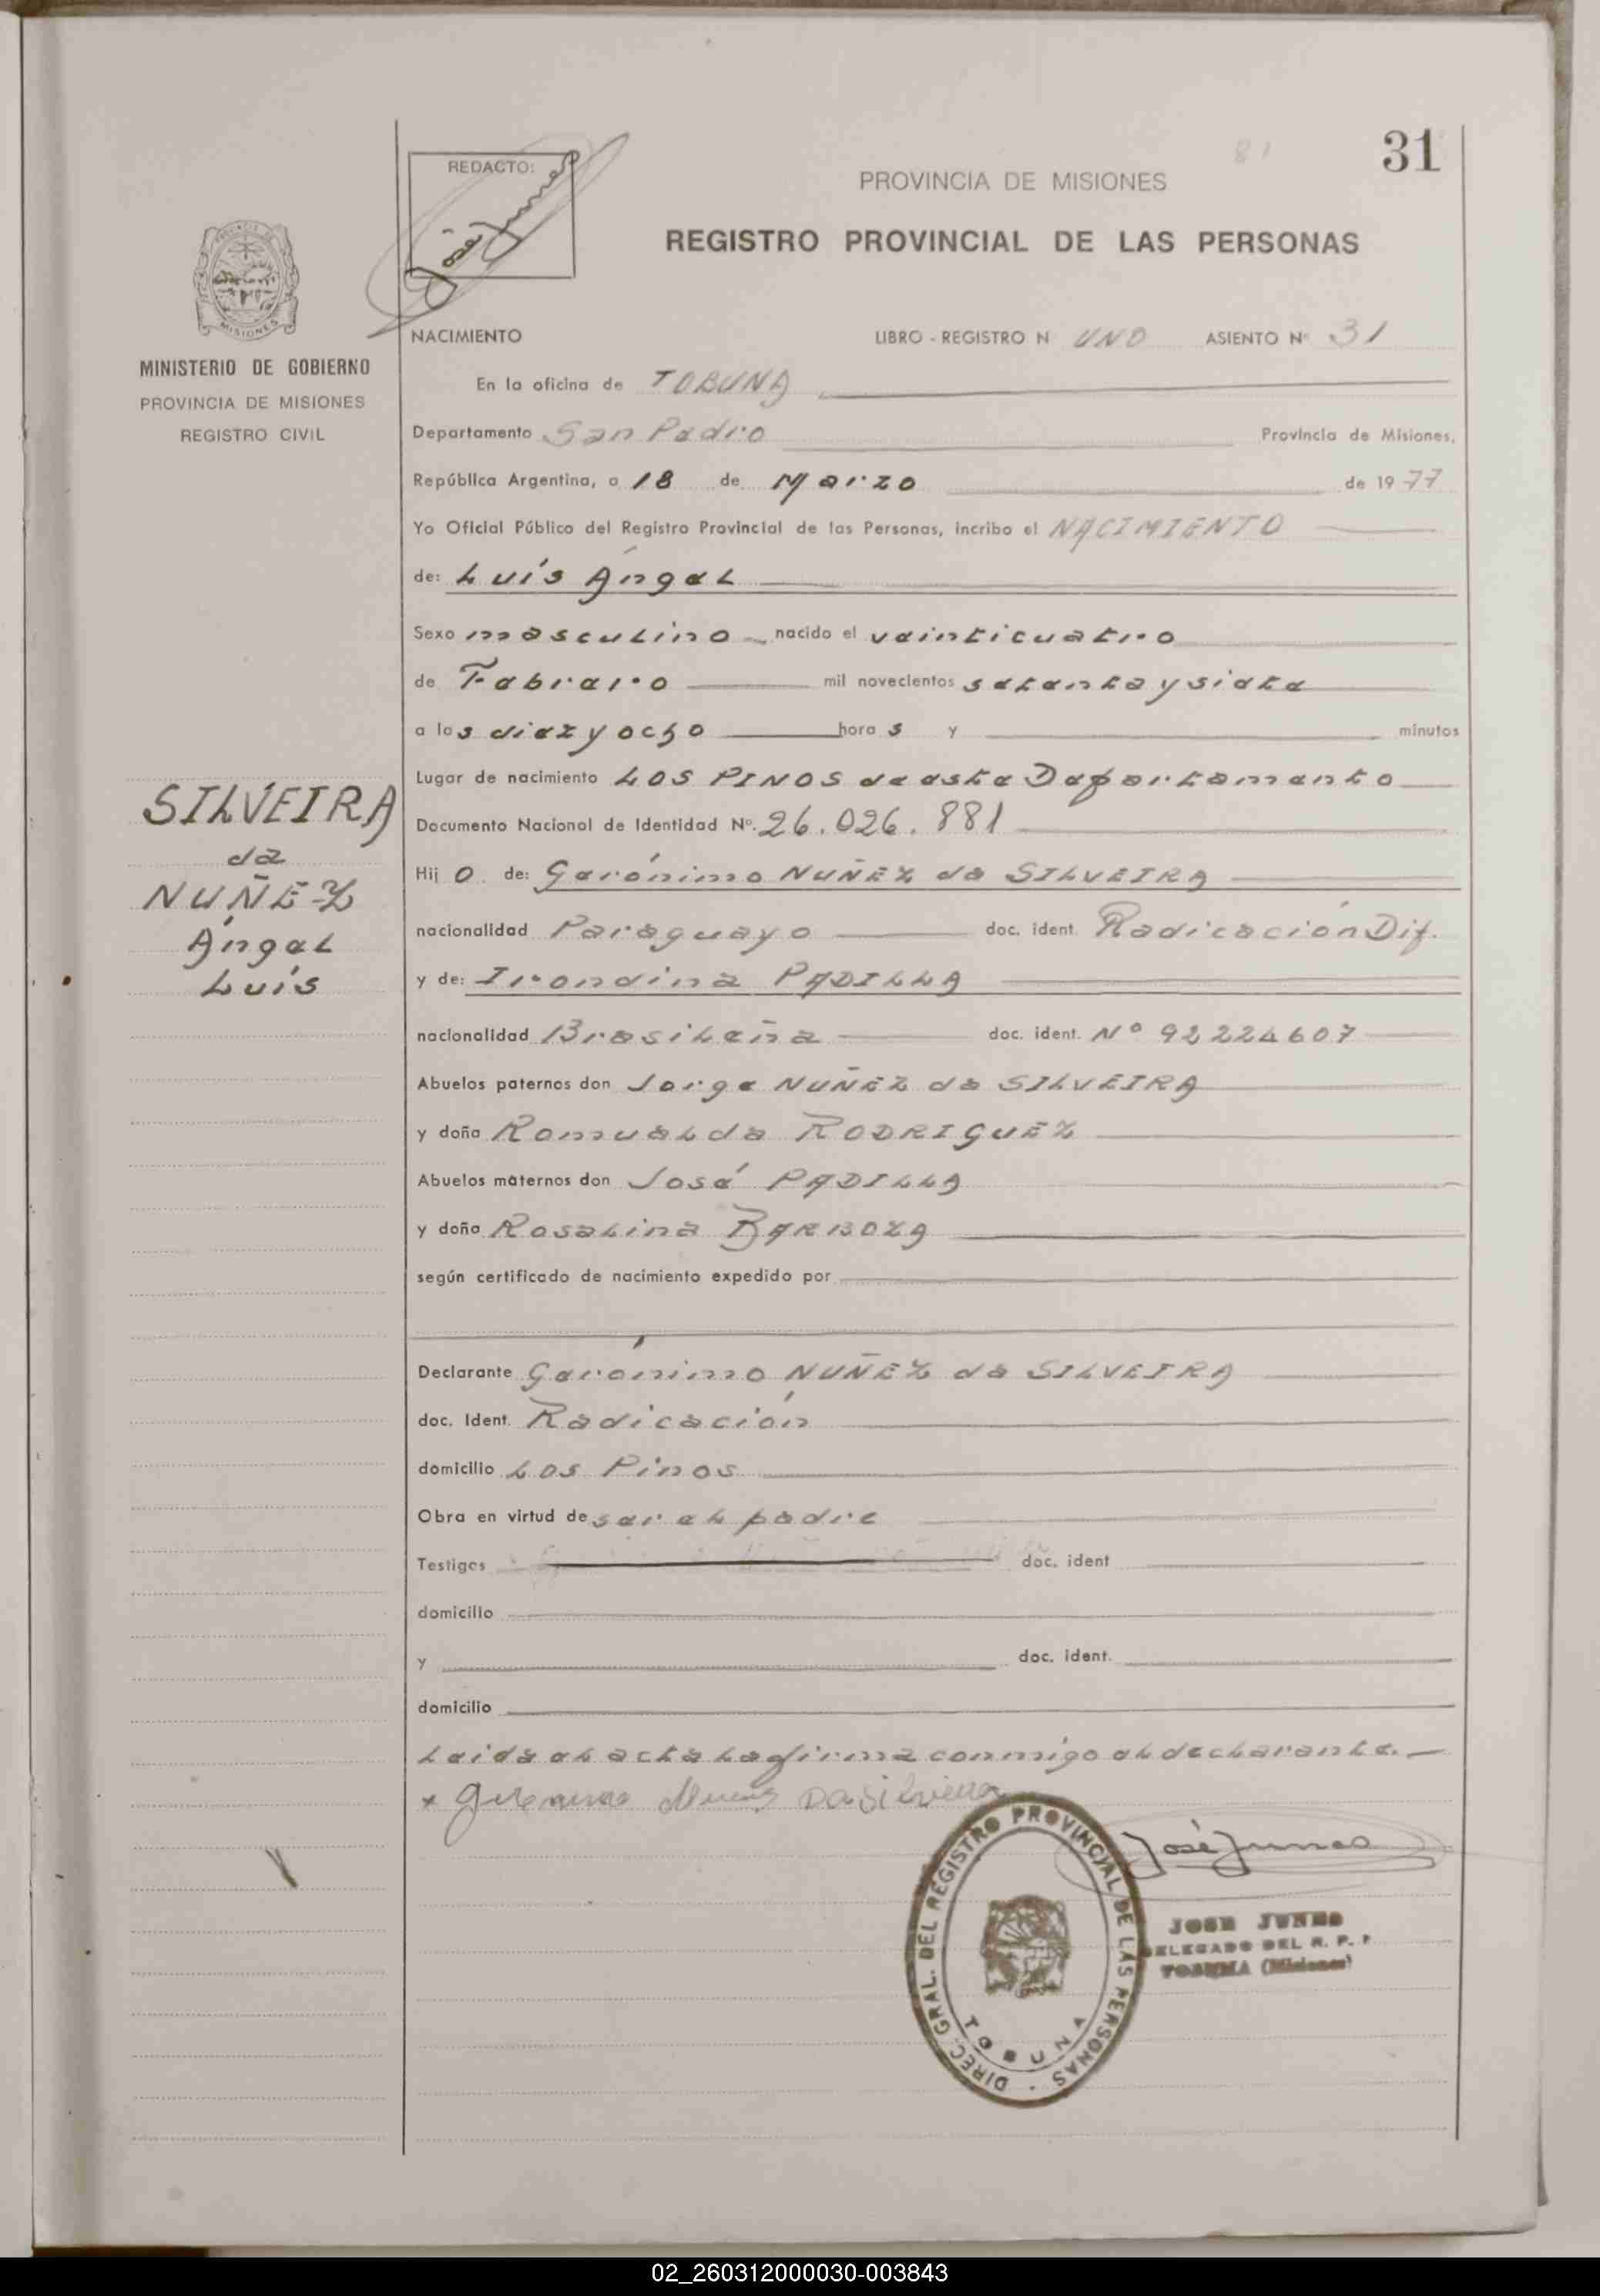 31
81
REDACTO:
José Junes
PROVINCIA DE MISIONES
REGISTRO PROVINCIAL DE LAS PERSONAS
MISIONES
MINISTERIO DE GOBIERNO
PROVINCIA DE MISIONES
REGISTRO CIVIL
NACIMIENTO LIBRO - REGISTRO N UNO ASIENTO Nº 31
En la oficina de TOBUNA
Departamento San Pedro Provincia de Misiones,
República Argentina, a 18 de Marzo de 1977
Yo Oficial Público del Registro Provincial de las Personas, incribo el NACIMIENTO
de: Luís Ángel
Sexo masculino nacido el veinticuatro
de Febrero mil novecientos setenta y siete
a las diez y ocho horas y minutos
Lugar de nacimiento LOS PINOS de este Departamento
Documento Nacional de Identidad Nº. 26.026.881
Hijo de: Gerónimo NUÑEZ da SILVEIRA
nacionalidad Paraguayo doc. ident. Radicación Dif.
y de: Irondina PADILLA
nacionalidad Brasileña doc. ident. Nº 92224607
Abuelos paternos don Jorge NUÑEZ da SILVEIRA
y doña Romualda RODRIGUEZ
Abuelos maternos don José PADILLA
y doña Rosalina BARBOZA
según certificado de nacimiento expedido por
Declarante Gerónimo NUÑEZ da SILVEIRA
doc. Ident. Radicación
domicilio Los Pinos
Obra en virtud de ser el padre
Testigos doc. ident
domicilio
y doc. ident.
domicilio
Leida el acta la firma conmigo el declarante.
SILVEIRA
da
NUÑEZ
Ángel
Luís
José Junes
DIREC. GRAL. DEL REGISTRO PROVINCIAL DE LAS PERSONAS
TOBUNA
JOSE JUNES
DELEGADO DEL R. P. P
TOBUNA (Misiones)
02_260312000030-003843